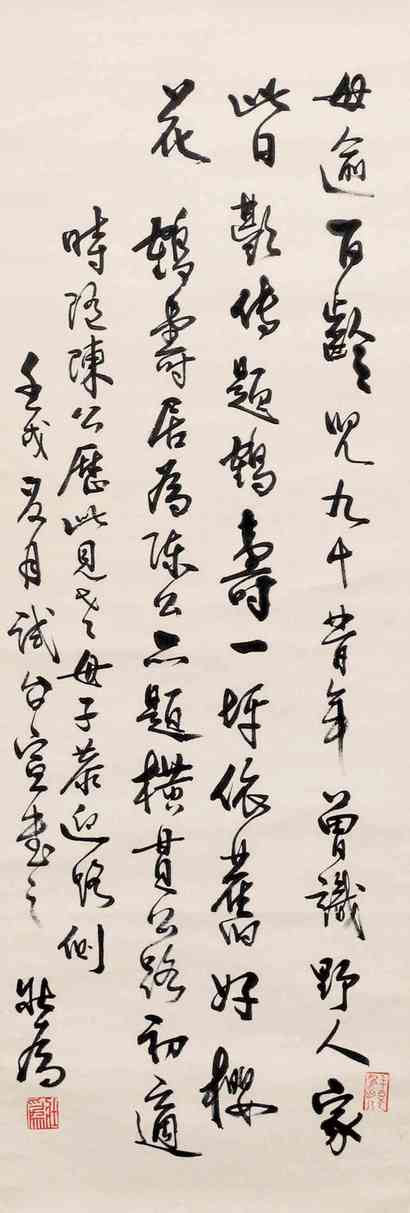 母逾百齡兒九十昔年曾識野人家
此日歡傳題鶴壽一坪依舊好櫻
花 鶴壽居為陳公所題橫貫公路初通
時隨陳公歷此見其母子恭迎路側
壬戌夏月試台宣書之 壯為